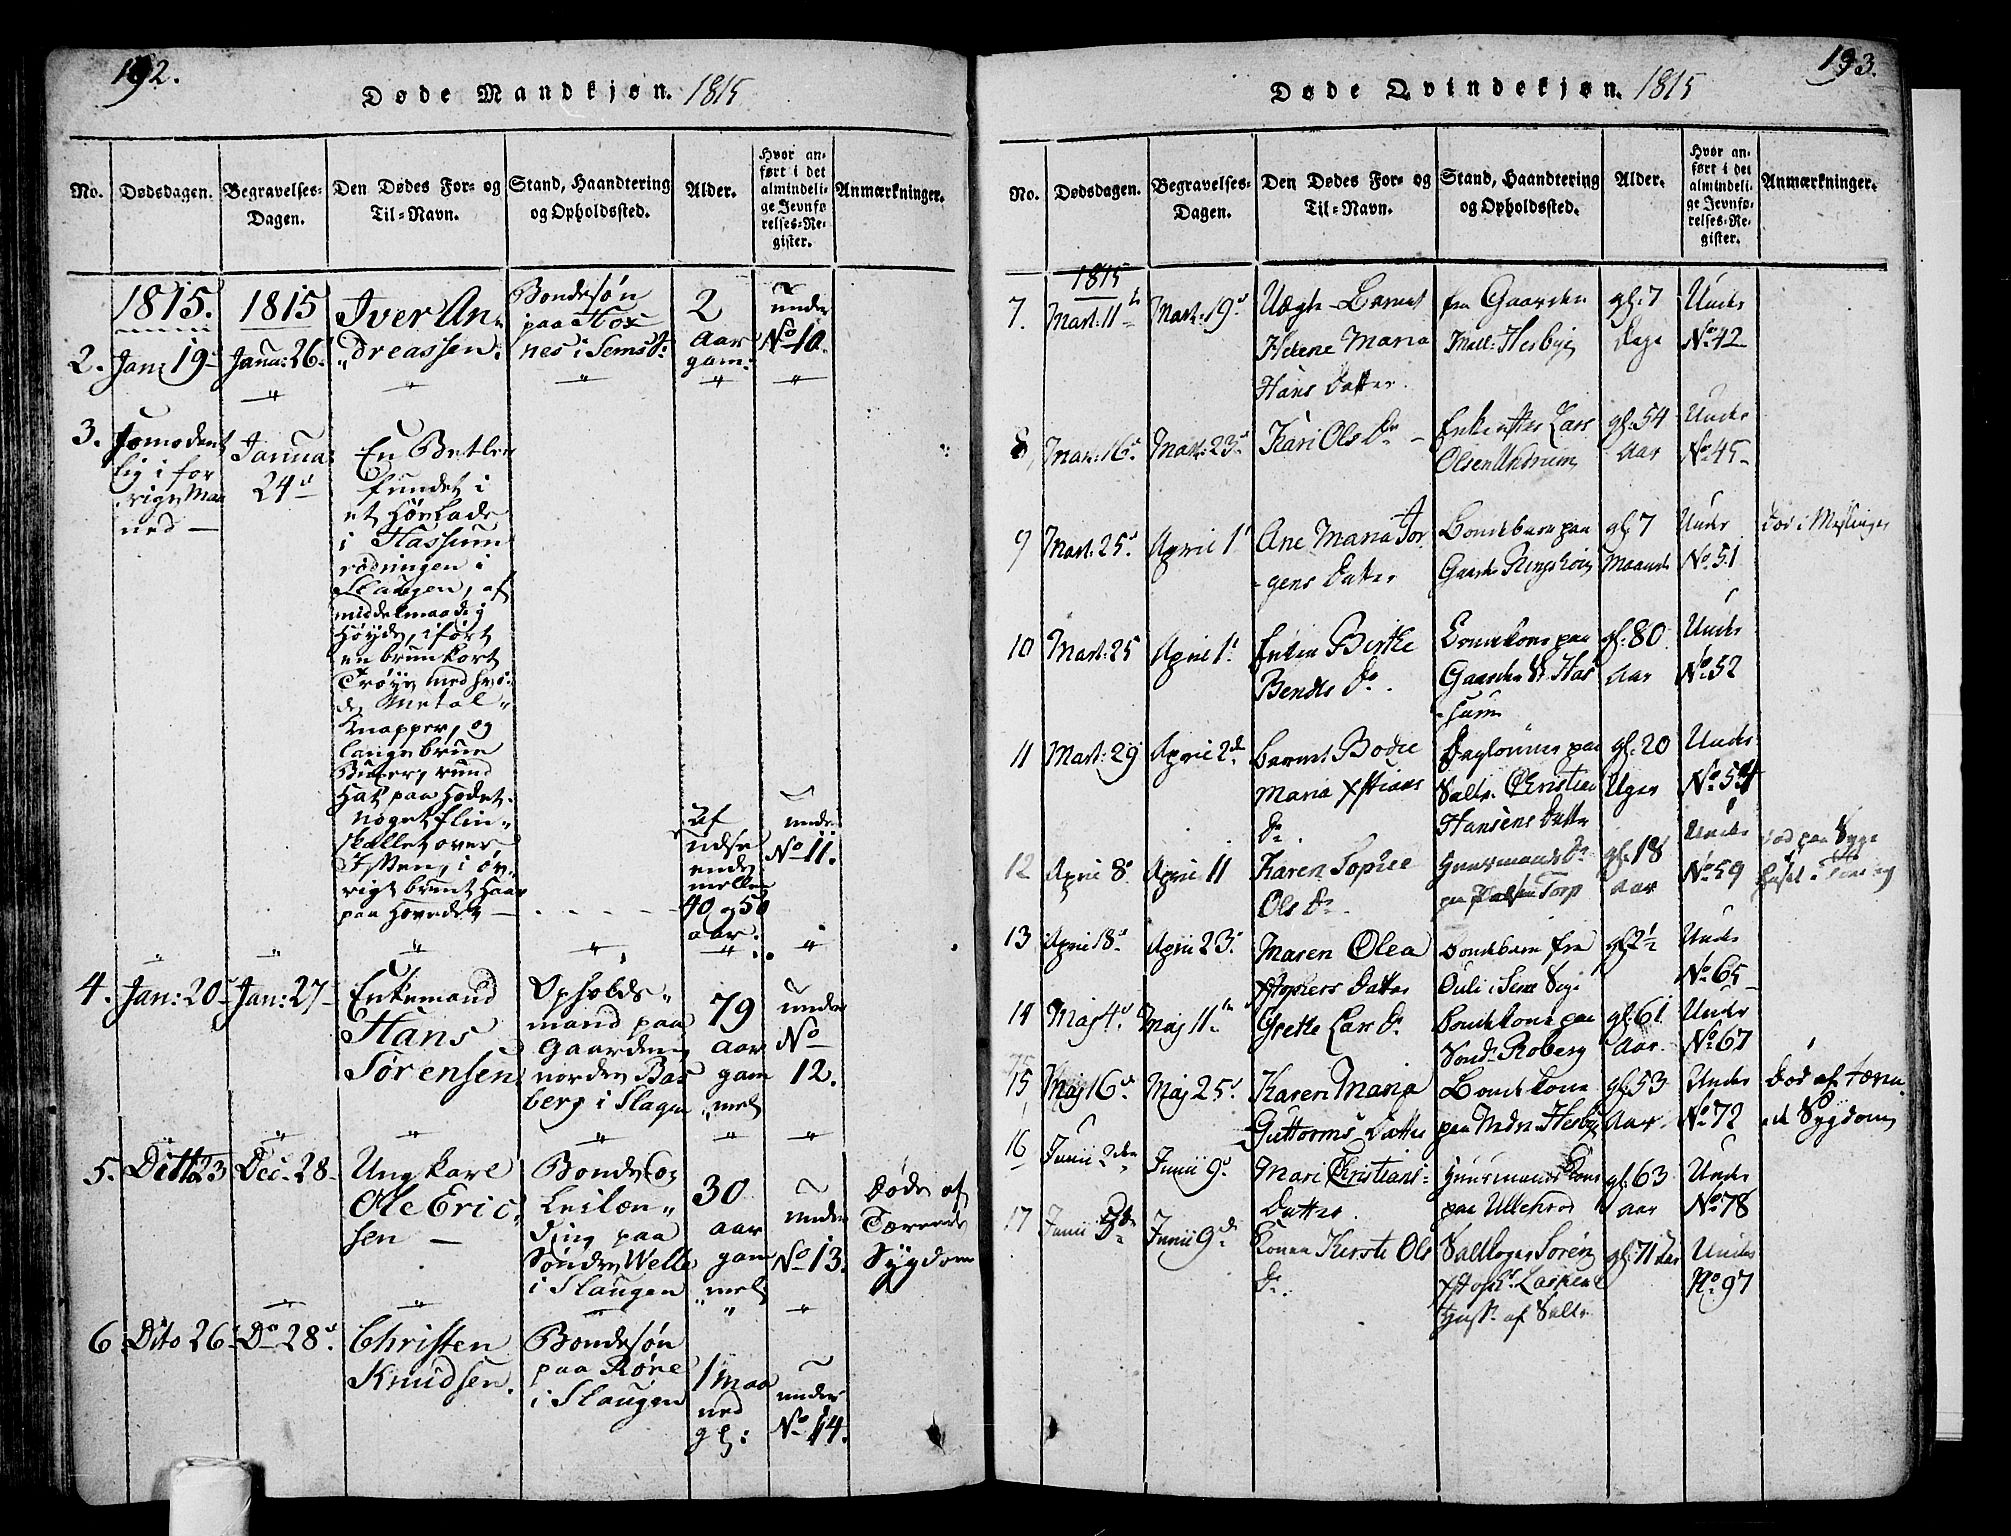 192.
Døde Mandkjøn. 1815
No.
Dødsdagen.
Begravelses-
Dagen.
Den Dødes For- og
Til-Navn.
Stand, Haandtering
og Opholdssted.
Alder.
Hvor an-
ført i det
almindeli-
ge Jevnfø
relses-Re-
gister.
Anmærkninger.
1815.
2. Jan: 19
1815
Janu: 26.
Iver An-
dreassen.
Bondesøn
paa Hox
nes i Sems
2
Aar
gam:
under
No 10.
3.
Formodent
lig i for
rige Maa
ned —
Janua:
24
En Betler
fundet i
et Høelade
i Hassum
rødningen i
Slaugen, af
middelmaadig
Høyde, iført
en brun kort
Trøye med
Metal
Knapper, og
lange brune
rund
Hat paa Hodet
noget flin-
skallet over
Issen, i øv-
rigt brunt Haar
paa Hovedet —
af
udse
ende
mellem
40 og 50
aar.
under
No 11.
4. Jan: 20 Jan: 27
Enkemand
Hans
Sørensen
Opholds-
mand paa
Gaarden
norden Bas
berg i Slagen
79
aar
gam
mel
under
No
12.
5. Ditto 23 Dec. 28.
Ungkarl
Ole Eric-
sen —
Bonde og
Leilæn-
ding paa
Søndre Welle
i Slaugen
30
aar
gam
mel
under
No 13.
Døde af
Tærende
Sygdom
6 Dito 26 Do 28.
Christen
Knudsen.
Bondesøn
paa Røre
i Slaugen
1 maa
ned
gl:
under
No 14.
193.
Døde Qvindekjøn. 1815
No.
Dødsdagen.
Begravelses-
Dagen.
Den Dødes For- og
Til-Navn.
Stand, Haandtering
og Opholdssted.
Alder.
Hvor an-
ført i det
almindeli-
ge Jevnfø-
relses-Re-
gister.
Anmærkninger.
1815
7. Mart: 11 Mart: 19
Uægte Barnet
Helene Maria
Hans Datter.
fra Gaarden
Mell: Hesbye
gl: 7
Dage
Under
No 42
8 Mar: 16 Mar: 23
Kari Ols Dr —
Enke efter Lars
Olsen Undrum
gl: 54
Aar
Under
No 45
9 Mart: 25 April 1
Ane Maria Jør
gens Datter
Bondebarn paa
Gaarden Ringshoug
gl: 7
Maaneder
Under
No 51
død i Meslinger
10 Mart: 25 April 1
Enken Birthe
Bendts Dr.
Bondekone paa
Gaarden Has
sum
gl: 80
Aar
Under
No 52
11 Mart: 29 April 2
Barnet Bodie
Maria Xstians
Dr.
Dagløner paa
Saltv. Christian
Hansens Datter
gl: 20
Uger
Under
No 54
12 April 8 April 11
Karen Sophie
Ols Dr.
Huusmands Dr
paa Torp
gl: 18
Aar
Under
No 59
død paa Syge
huset i
13 April 18 April 23
Maren Olea
Xstophers Datter
Bondebarn fra
Ouli i Sem Sogn
gl 2½
Under
No 65
14 Maj 4 Maj 11
Grette Lars Dr
Bondekone paa
Sond: Roberg
gl: 61
Aar
Under
No 67
15 Maj 16 Maj 25
Karen Maria
Guttorms Datter
Bondekone
paa Mdn Hesbye
gl: 53
Aar
Under
No 72
Død af Tæren
de Sygdom
16 Junii 2den Junii 9
Mari Christians-
Datter
Huusmands Kone
paa Ullehrød
gl: 63
aar
Under
No 78
17 Junii Junii 9
Konen Kirste Ols
Dr.
Søren
Xstoph.
Hust. af Saltv
gl: 71 Aar
Under
No 97